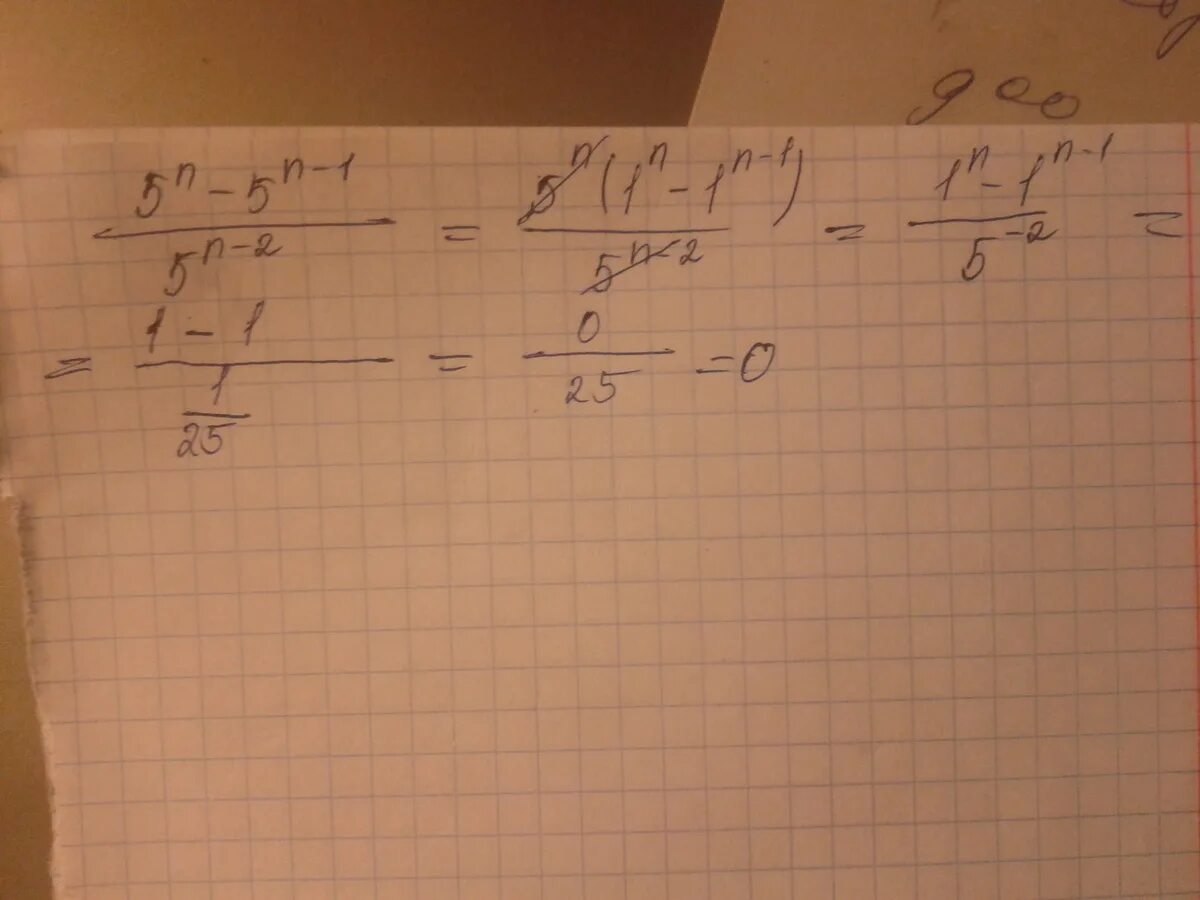 900
5^n - 5^{n-1} / 5^{n-2} = 5^n (1^n - 1^{n-1}) / 5^{n-2} = 1^n - 1^{n-1} / 5^{-2} =
= 1 - 1 / 1/25 = 0 / 25 = 0